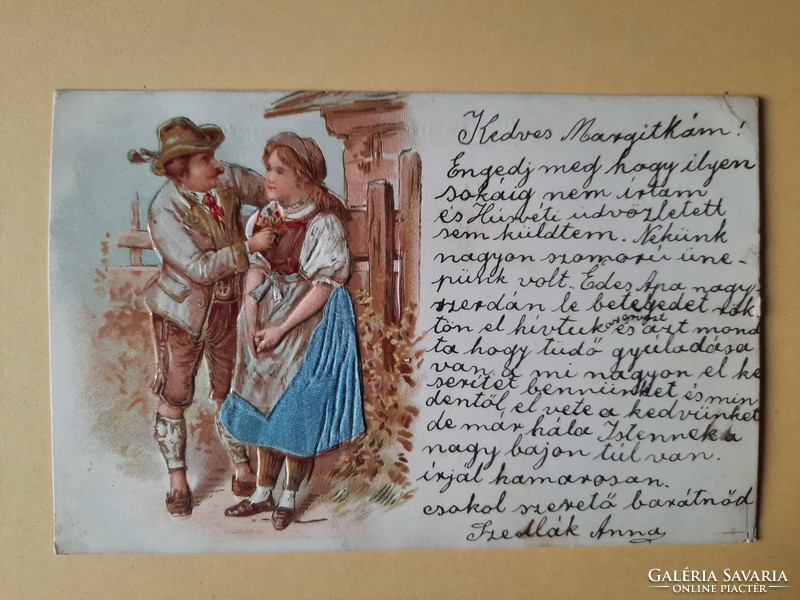 Kedves Margitkám!
Engedj meg hogy ilyen
sokáig nem irtam
és Húsvéti üdvözletett
sem küldtem. Nekünk
nagyon szomorú üne-
pünk volt. Édes Apa nagy-
szerdán le betegedet rök-
tön el hívtuk az orvost és azt mond
ta hogy tüdő gyúladása
van. a mi nagyon el ke
serítet bennünket és min
dentől el vete a kedvünket
de már hála Istennek a
nagy bajon túl van.
írjál hamarosan.
csokol szerető barátnőd
Szedlák Anna
GALÉRIA SAVARIA
ONLINE PIACTÉR